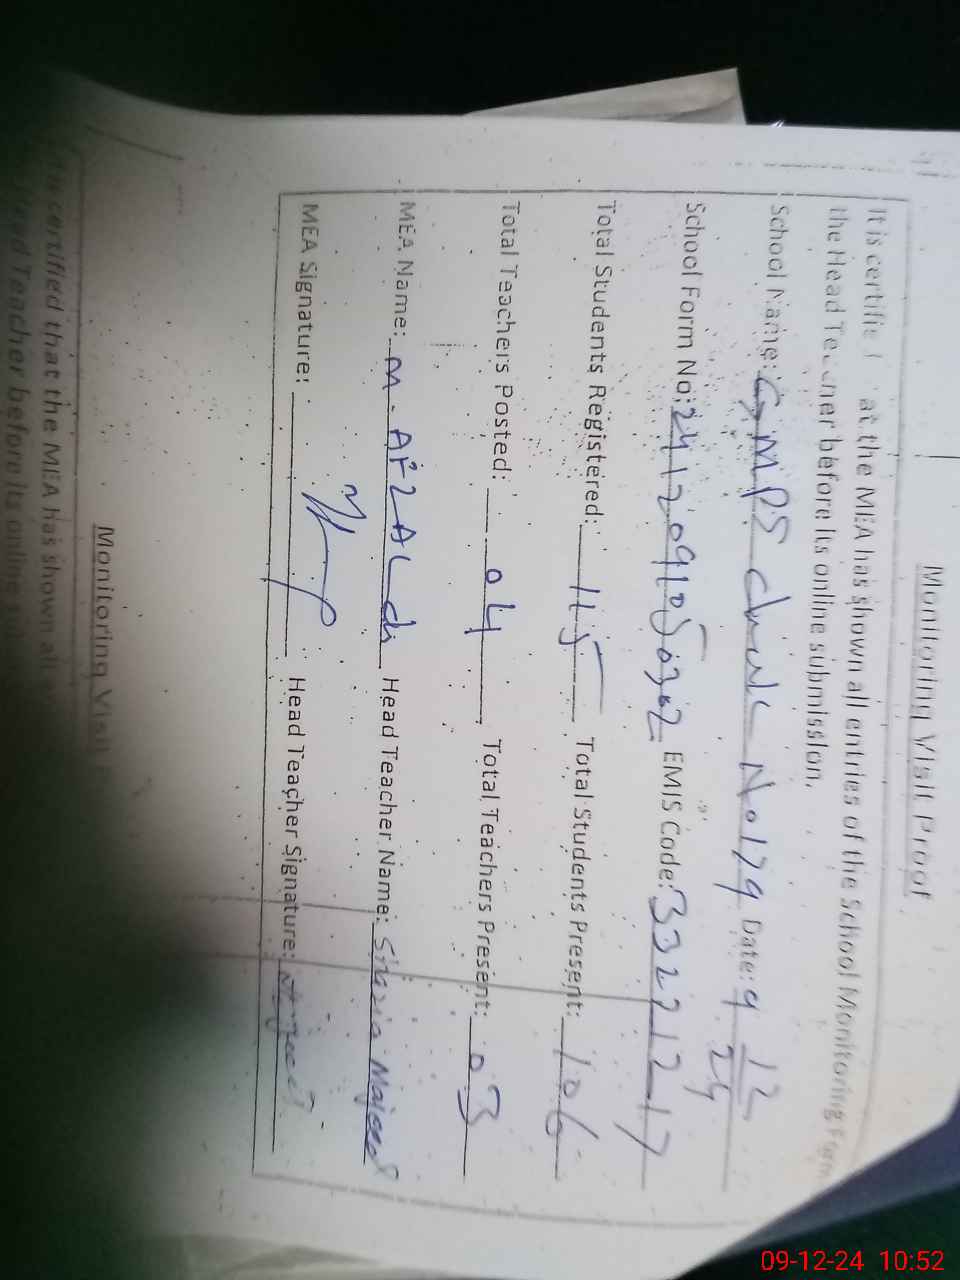 Monitoring Visit Proof
It is certified at the MEA has shown all entries of the School Monitoring Form
the Head Teacher before its online submission.
School Name: GMPS Chak No 179 Date: 9 12 24
School Form No: EMIS Code: 33221217
Total Students Registered: 115 Total Students Present: 106
Total Teachers Posted: 04 Total Teachers Present: 03
MEA Name: M. AFZAL Head Teacher Name: Shazia Majeed
MEA Signature: Head Teacher Signature:
Monitoring Visit
certified that the MEA has shown all
Teacher before its online
09-12-24 10:52